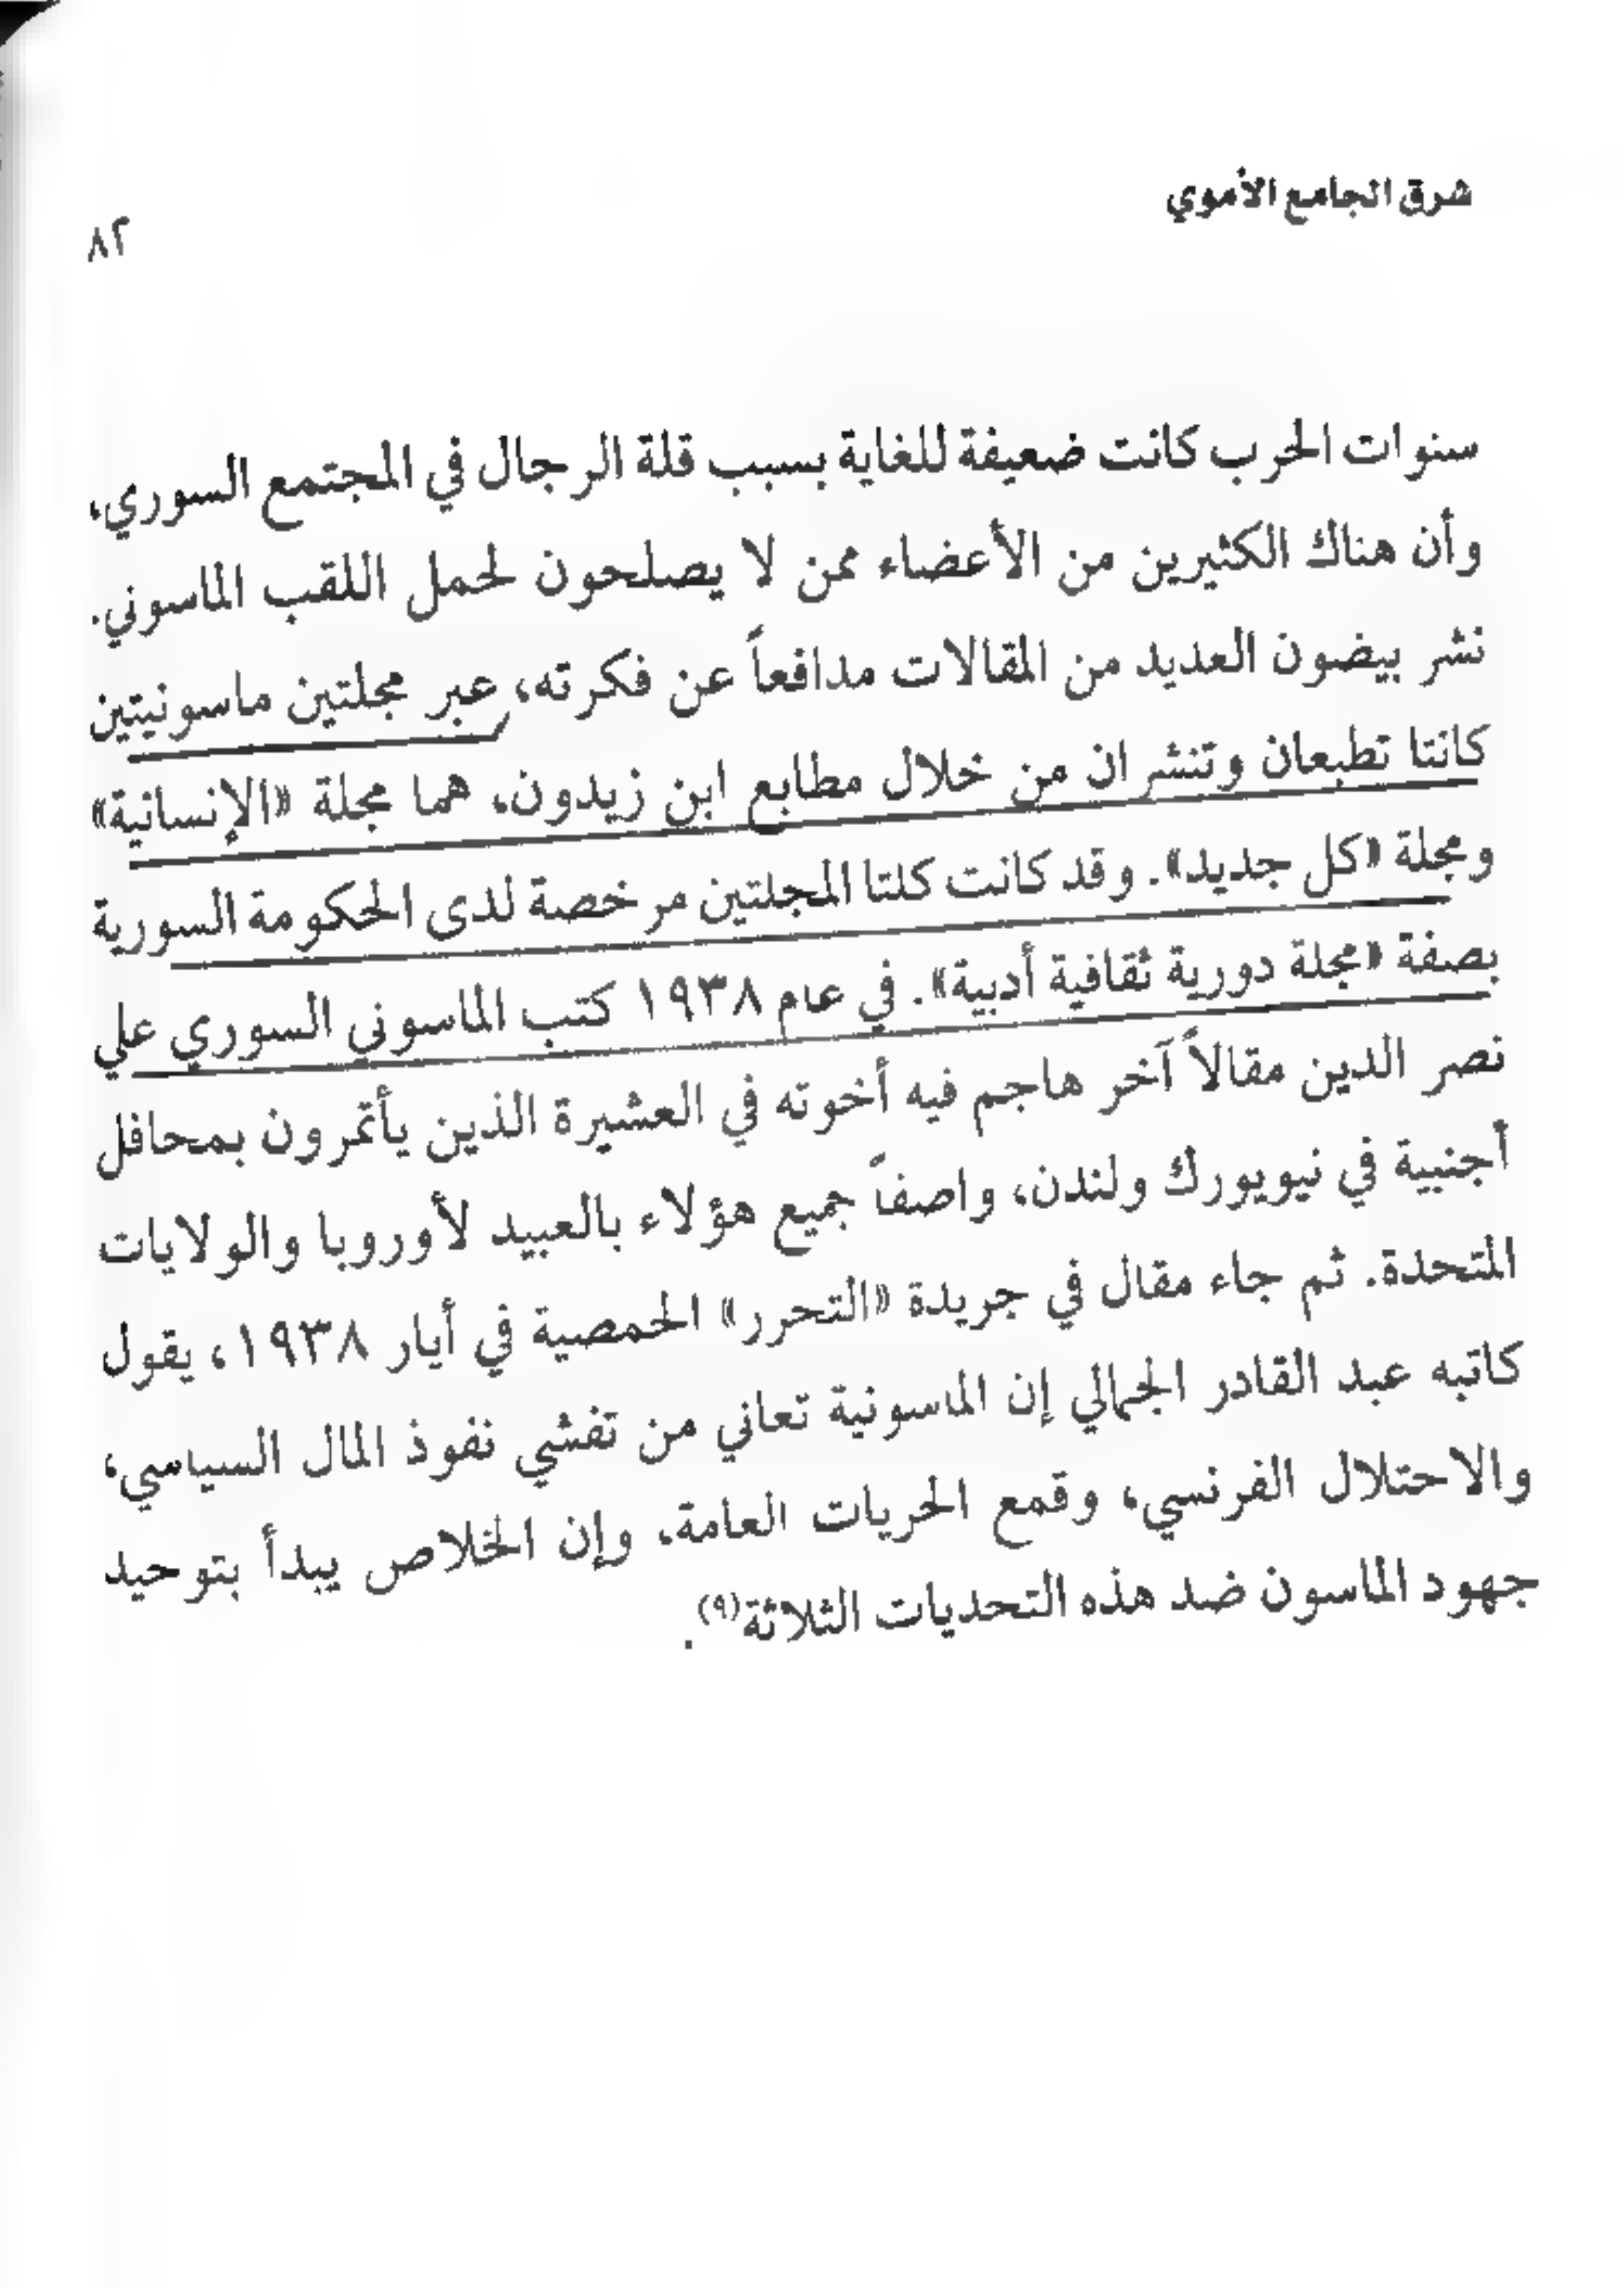 شرق الجامع الأموي
٨٢
سنوات الحرب كانت ضعيفة للغاية بسبب قلة الرجال في المجتمع السوري،
وأن هناك الكثيرين من الأعضاء ممن لا يصلحون لحمل اللقب الماسوني.
نشر بيضون العديد من المقالات مدافعاً عن فكرته، عبر مجلتين ماسونيتين
كانتا تطبعان وتنشران من خلال مطابع ابن زيدون، هما مجلة «الإنسانية»
ومجلة «كل جديد». وقد كانت كلتا المجلتين مرخصة لدى الحكومة السورية
بصفة «مجلة دورية ثقافية أدبية». في عام ١٩٣٨ كتب الماسوني السوري علي
نصر الدين مقالاً آخر هاجم فيه أخوته في العشيرة الذين يأتمرون بمحافل
أجنبية في نيويورك ولندن، واصفاً جميع هؤلاء بالعبيد لأوروبا والولايات
المتحدة. ثم جاء مقال في جريدة «التحرر» الحمصية في أيار ١٩٣٨، يقول
كاتبه عبد القادر الجمالي إن الماسونية تعاني من تفشي نفوذ المال السياسي،
والاحتلال الفرنسي، وقمع الحريات العامة، وإن الخلاص يبدأ بتوحيد
جهود الماسون ضد هذه التحديات الثلاثة(٩).